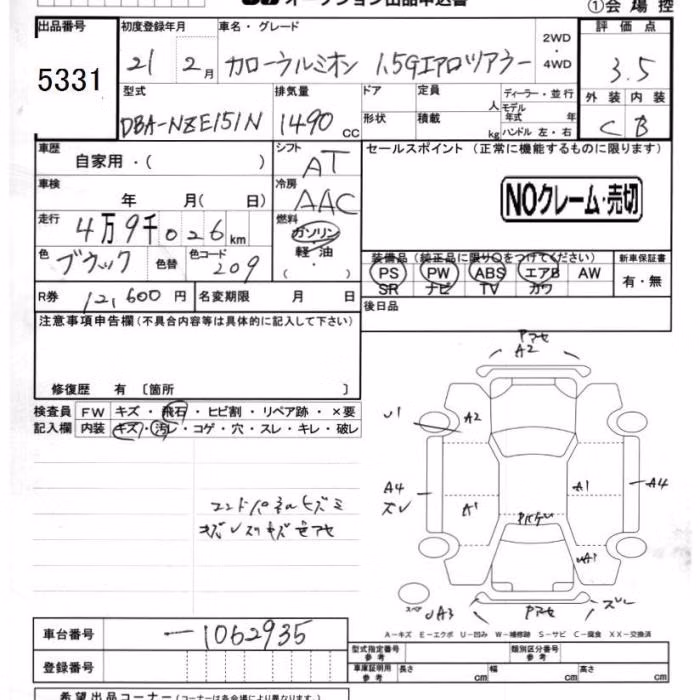 オークション出品申込書
①会場控
出品番号 初度登録年月 車名・グレード 評価点
5331 21 2月 カローラルミオン 1.5Gエアロツアラー 2WD・4WD 3.5
型式 排気量 ドア 定員 人 ディーラー・並行 外装 内装
モデル年式 年式
DBA-NZE151N 1490cc 形状 積載 kg ハンドル 左・右 C B
車歴 自家用・( ) シフト AT セールスポイント (正常に機能するものに限ります)
車検 年 月( 日) 冷房 AAC NOクレーム・売切
走行 4万9千026km 燃料 ガソリン・軽油・( )
色 ブラック 色替 色コード 209 装備品(純正品に限り○をつけてください) 新車保証書
PS PW ABS エアB AW 有・無
SR ナビ TV カワ
R券 12,600円 名変期限 月 日 後日品
注意事項申告欄(不具合内容等は具体的に記入して下さい)
修復歴 有 〔箇所 〕
検査員 FW キズ・飛石・ヒビ割・リペア跡・×要
記入欄 内装 キズ・汚レ・コゲ・穴・スレ・キレ・破レ
Pアセ
A2
U1 A2
A4 A1 A1 A4
ズレ
コンドパネルヒズミ
UA1
スペア UA3 Pアセ ズレ
A-キズ E-エクボ U-凹み W-補修跡 S-サビ C-腐食 XX-交換済
車台番号 -1062935
型式指定番号 参考 類別区分番号 参考
登録番号 車庫証明用 参考 長さ cm 幅 cm 高さ cm
希望出品コーナー(コーナーは各会場により異なります。)